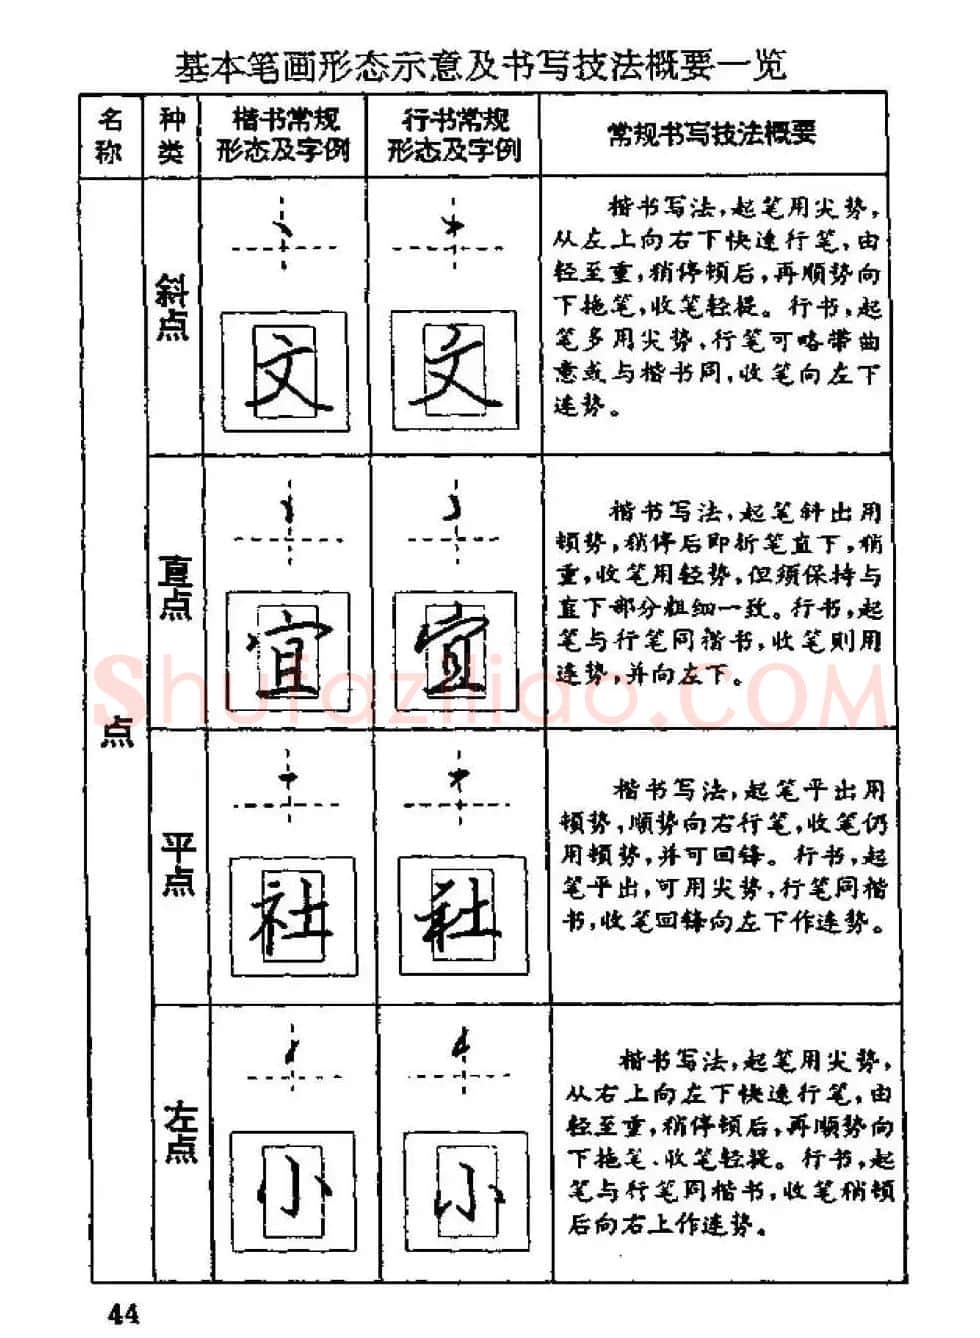 基本笔画形态示意及书写技法概要一览
名称
种类
楷书常规
形态及字例
行书常规
形态及字例
常规书写技法概要
点
斜点
文
文
楷书写法,起笔用尖势,
从左上向右下快速行笔,由
轻至重,稍停顿后,再顺势向
下拖笔,收笔轻提。行书,起
笔多用尖势,行笔可略带曲
意或与楷书同,收笔向左下
连势。
直点
宜
宜
楷书写法,起笔斜出用
顿势,稍停后即折笔直下,稍
重,收笔用轻势,但须保持与
直下部分粗细一致。行书,起
笔与行笔同楷书,收笔则用
连势,并向左下。
平点
社
社
楷书写法,起笔平出用
顿势,顺势向右行笔,收笔仍
用顿势,并可回锋。行书,起
笔平出,可用尖势,行笔同楷
书,收笔回锋向左下作连势。
左点
小
小
楷书写法,起笔用尖势,
从右上向左下快速行笔,由
轻至重,稍停顿后,再顺势向
下拖笔、收笔轻提。行书,起
笔与行笔同楷书,收笔稍顿
后向右上作连势。
Shufaziliao.COM
44